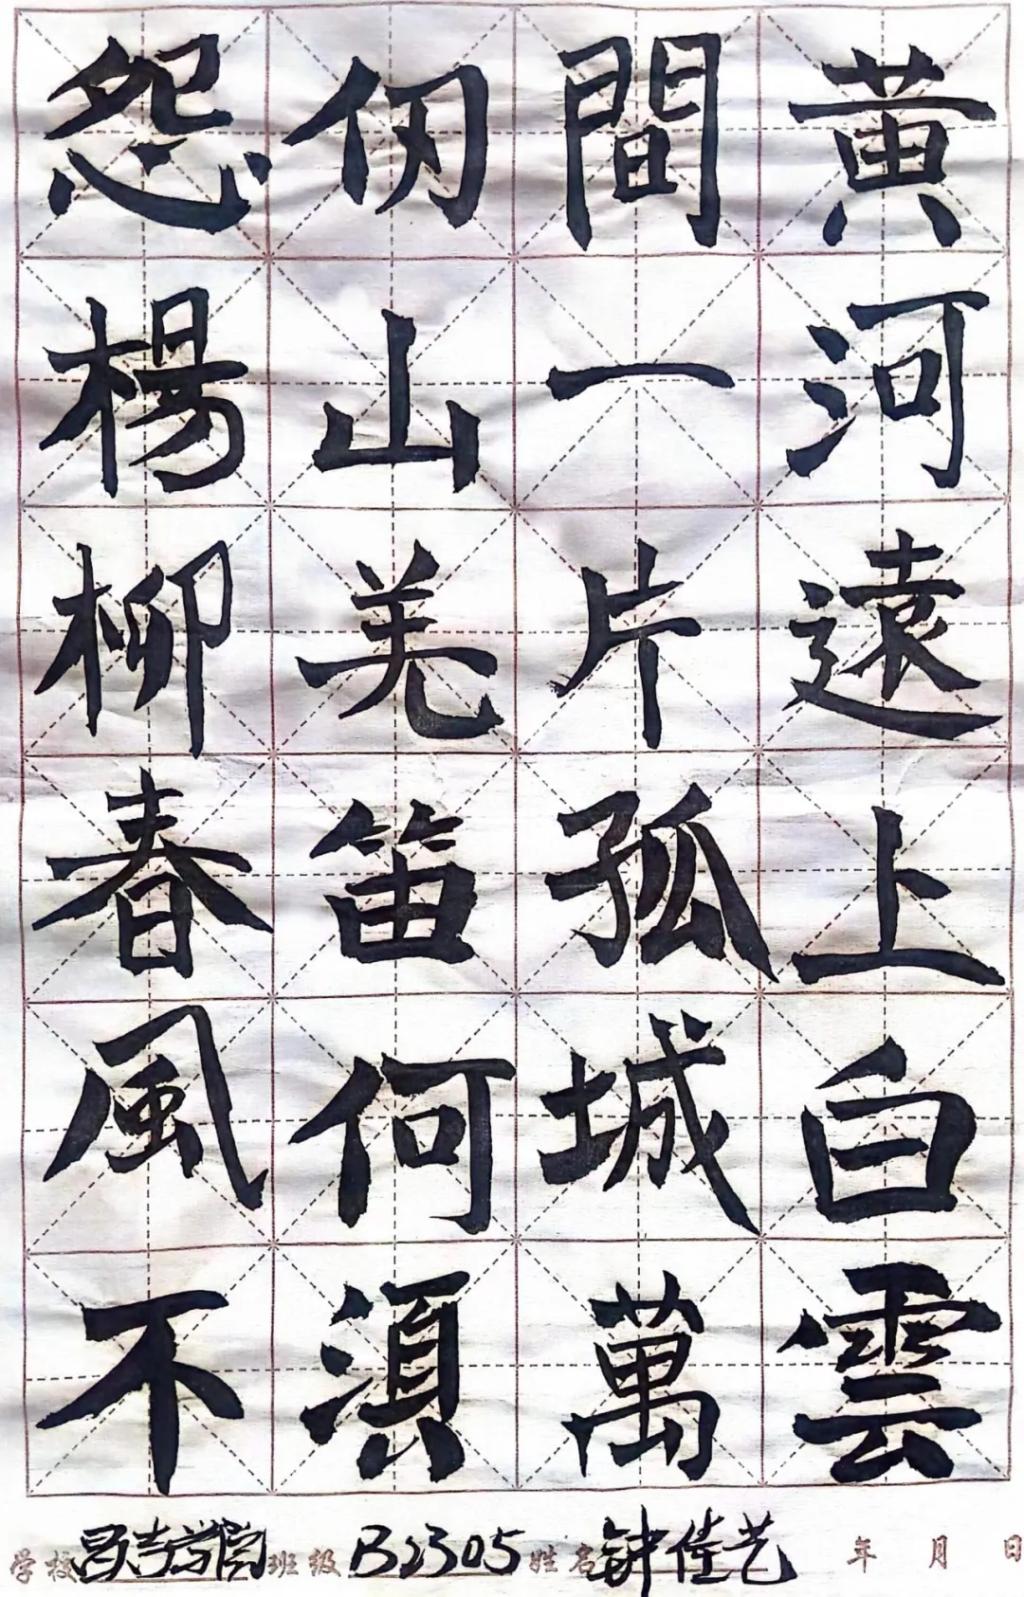 黄河遠上白雲
間一片孤城萬
仞山羌笛何須
怨楊柳春風不
学校 昌吉学院 班级 B2305 姓名 钟佳艺 年 月 日